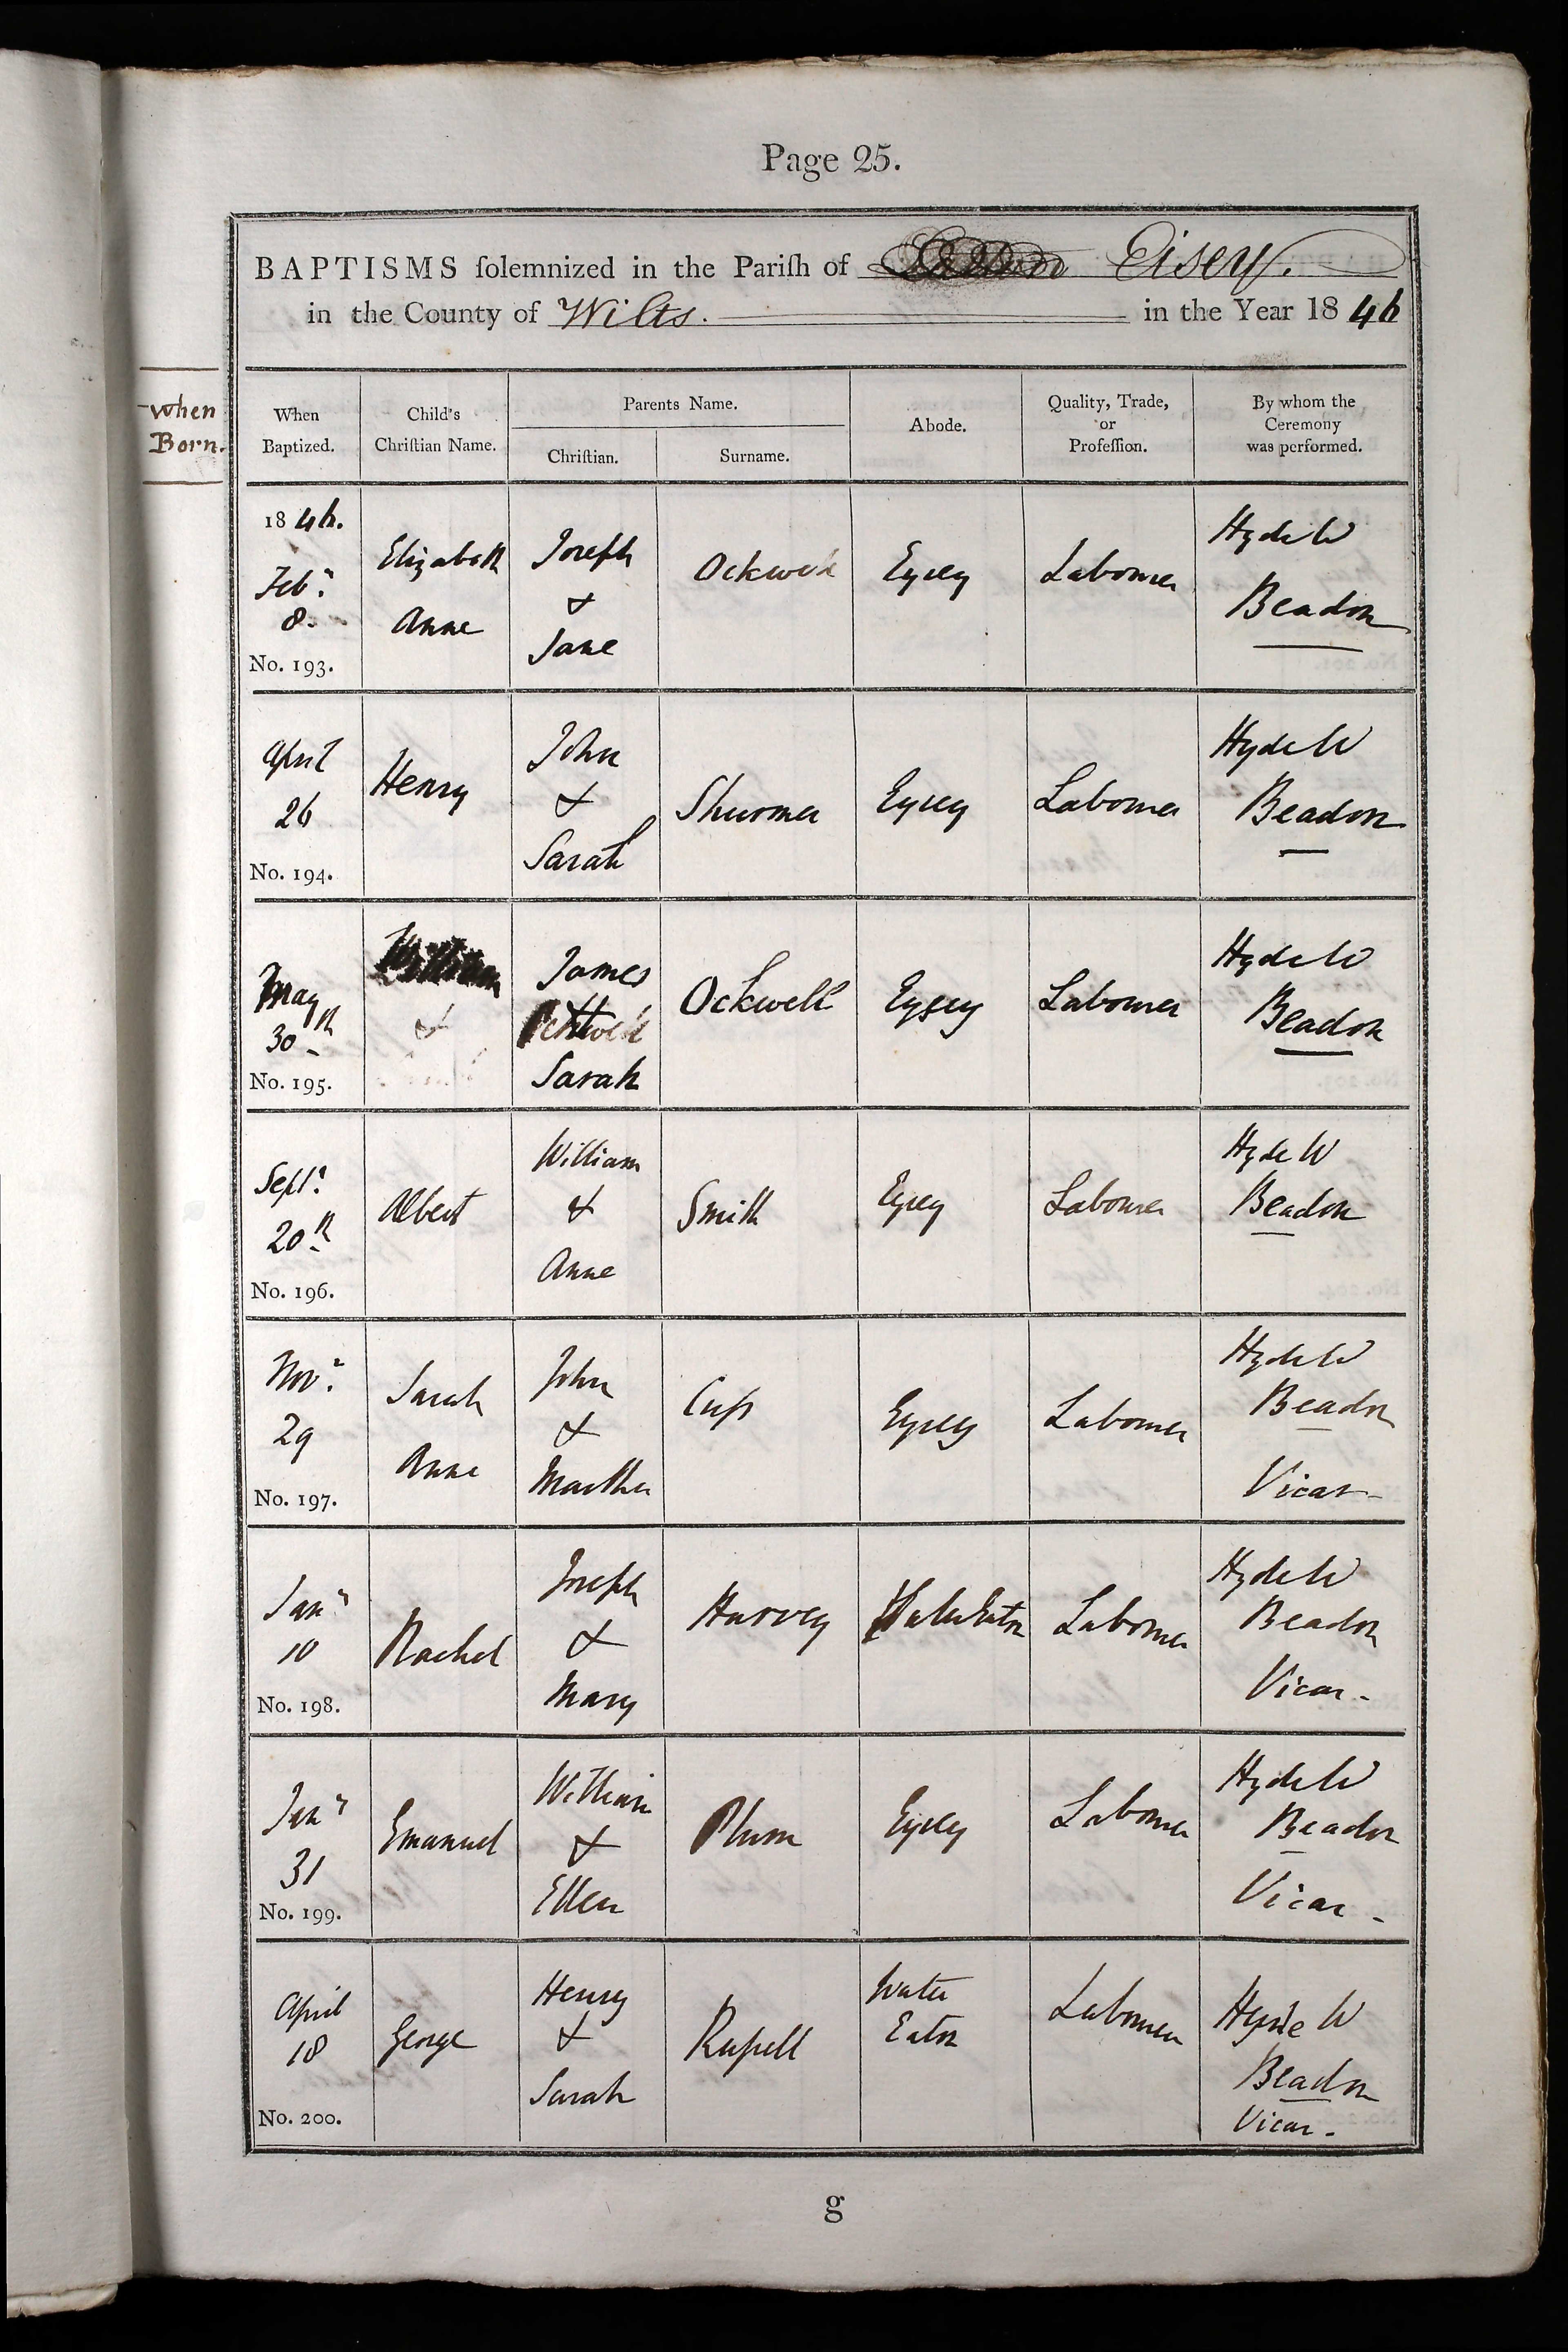 Page 25.
BAPTISMS solemnized in the Parish of Eisey.
in the County of Wilts. in the Year 1846
When
Born.
When
Baptized.
Child's
Christian Name.
Parents Name.
Christian.
Surname.
Abode.
Quality, Trade,
or
Profession.
By whom the
Ceremony
was performed.
1846.
Feby.
8.
No. 193.
Elizabeth
Anne
Joseph
&
Jane
Ockwell
Eysey
Labourer
Hyde W
Beadon
April
26
No. 194.
Henry
John
&
Sarah
Shurmer
Eysey
Labourer
Hyde W
Beadon
May
30th
No. 195.
William
&
James
Ockwell
Sarah
Ockwell
Eysey
Labourer
Hyde W
Beadon
Septr.
20th
No. 196.
Albert
William
&
Anne
Smith
Eysey
Labourer
Hyde W
Beadon
Novr.
29
No. 197.
Sarah
Anne
John
&
Martha
Eysey
Labourer
Hyde W
Beadon
Vicar
Jany
10
No. 198.
Rachel
Joseph
&
Mary
Harvey
Water Eaton
Labourer
Hyde W
Beadon
Vicar.
Jany
31
No. 199.
Emanuel
William
&
Ellen
Plum
Eysey
Labourer
Hyde W
Beadon
Vicar.
April
18
No. 200.
George
Henry
&
Sarah
Russell
Water
Eaton
Labourer
Hyde W
Beadon
Vicar.
g